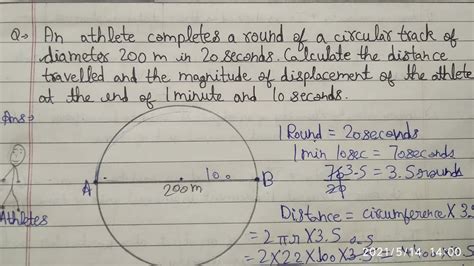 Q→ An athlete completes a round of a circular track of
diameter 200 m in 20 seconds. Calculate the distance
travelled and the magnitude of displacement of the athlete
at the end of 1 minute and 10 seconds.
Ans→
1 Round = 20 seconds
1 min 10 sec = 70 seconds
70 3.5 = 3.5 rounds
20
A
10
B
200m
Athletes
Distance = circumference × 3.5
= 2πr × 3.5
= 2 × 22 × 100 × 3.5
2021/5/14 14:00